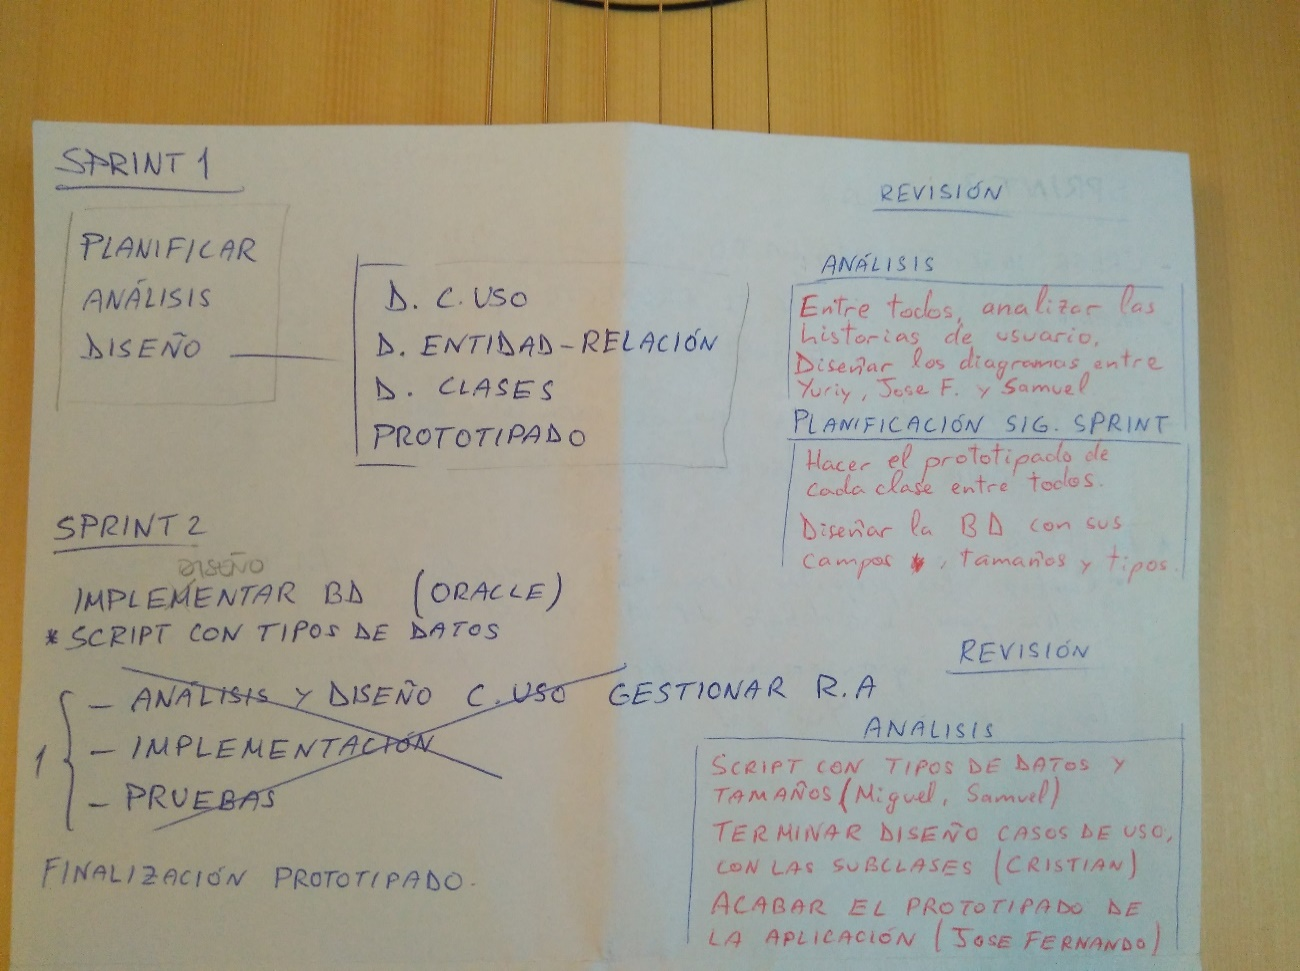 SPRINT 1
PLANIFICAR
ANÁLISIS
DISEÑO
D. C. USO
D. ENTIDAD-RELACIÓN
D. CLASES
PROTOTIPADO
REVISIÓN
ANÁLISIS
Entre todos, analizar las
historias de usuario.
Diseñar los diagramas entre
Yuriy, Jose F. y Samuel
PLANIFICACIÓN SIG. SPRINT
Hacer el prototipado de
cada clase entre todos.
Diseñar la BD con sus
campos , tamaños y tipos.
SPRINT 2
DISEÑO
IMPLEMENTAR BD (ORACLE)
* SCRIPT CON TIPOS DE DATOS
1
- ANÁLISIS Y DISEÑO C. USO GESTIONAR R.A
- IMPLEMENTACIÓN
- PRUEBAS
FINALIZACIÓN PROTOTIPADO.
REVISIÓN
ANÁLISIS
SCRIPT CON TIPOS DE DATOS Y
TAMAÑOS (Miguel, Samuel)
TERMINAR DISEÑO CASOS DE USO,
CON LAS SUBCLASES (CRISTIAN)
ACABAR EL PROTOTIPADO DE
LA APLICACIÓN (JOSE FERNANDO)